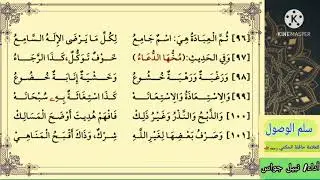 [٩٦] ثُمَّ الْعِبَادَةُ هِيَ: اسْمٌ جَامِعُ لِكُلِّ مَا يَرْضَى الإِلَهُ السَّامِعُ
[٩٧] وَفِي الحَدِيثِ: (مُخُّهَا الدُّعَاءُ) خَوْفٌ تَوَكُّلٌ، كَذَا الرَّجَاءُ
[٩٨] وَرَغْبَةٌ وَرَهْبَةٌ خُشُوعُ وَخَشْيَةٌ إِنَابَةٌ خُضُوعُ
[٩٩] وَالاسْتِعَاذَةُ وَالاسْتِعَانَهْ كَذَا اسْتِغَاثَةٌ بِهِ سُبْحَانَهْ
[١٠٠] وَالذَّبْحُ وَالنَّذْرُ وَغَيْرُ ذَلِكْ فَافْهَمْ هُدِيتَ أَوْضَحَ المَسَالِكْ
[١٠١] وَصَرْفُ بَعْضِهَا لِغَيْرِ اللَّهِ شِرْكٌ، وَذَاكَ أَقْبَحُ المَنَاهِي
KINEMASTER
سلم الوصول
للعلامة حافظ الحكمي
أداء/ نبيل جواس